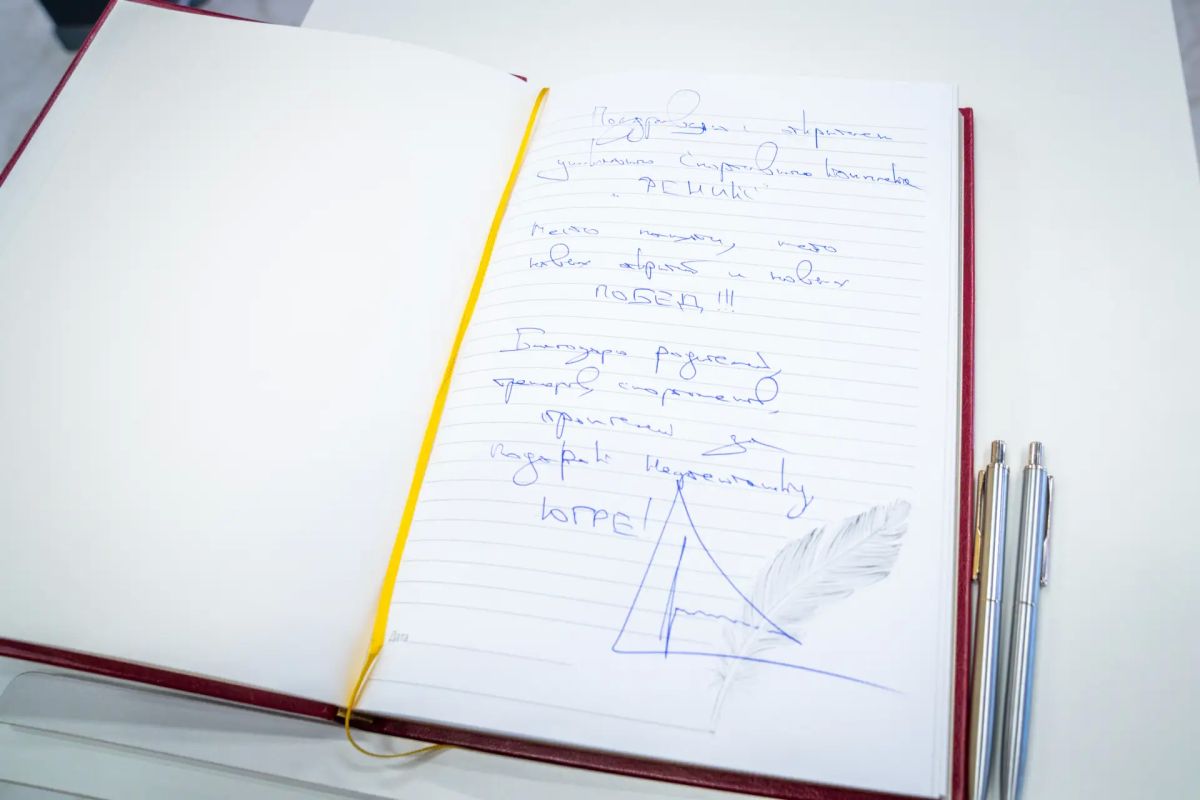 Поздравляю с открытием
уникального Спортивного комплекса
„ФЕНИКС"
Место, место
новых открытий и новых
ПОБЕД!!!
Благодарю родителей,
тренеров, спортсменов,
строителей за
подарок Нефтеюганску,
ЮГРЕ!
Дата